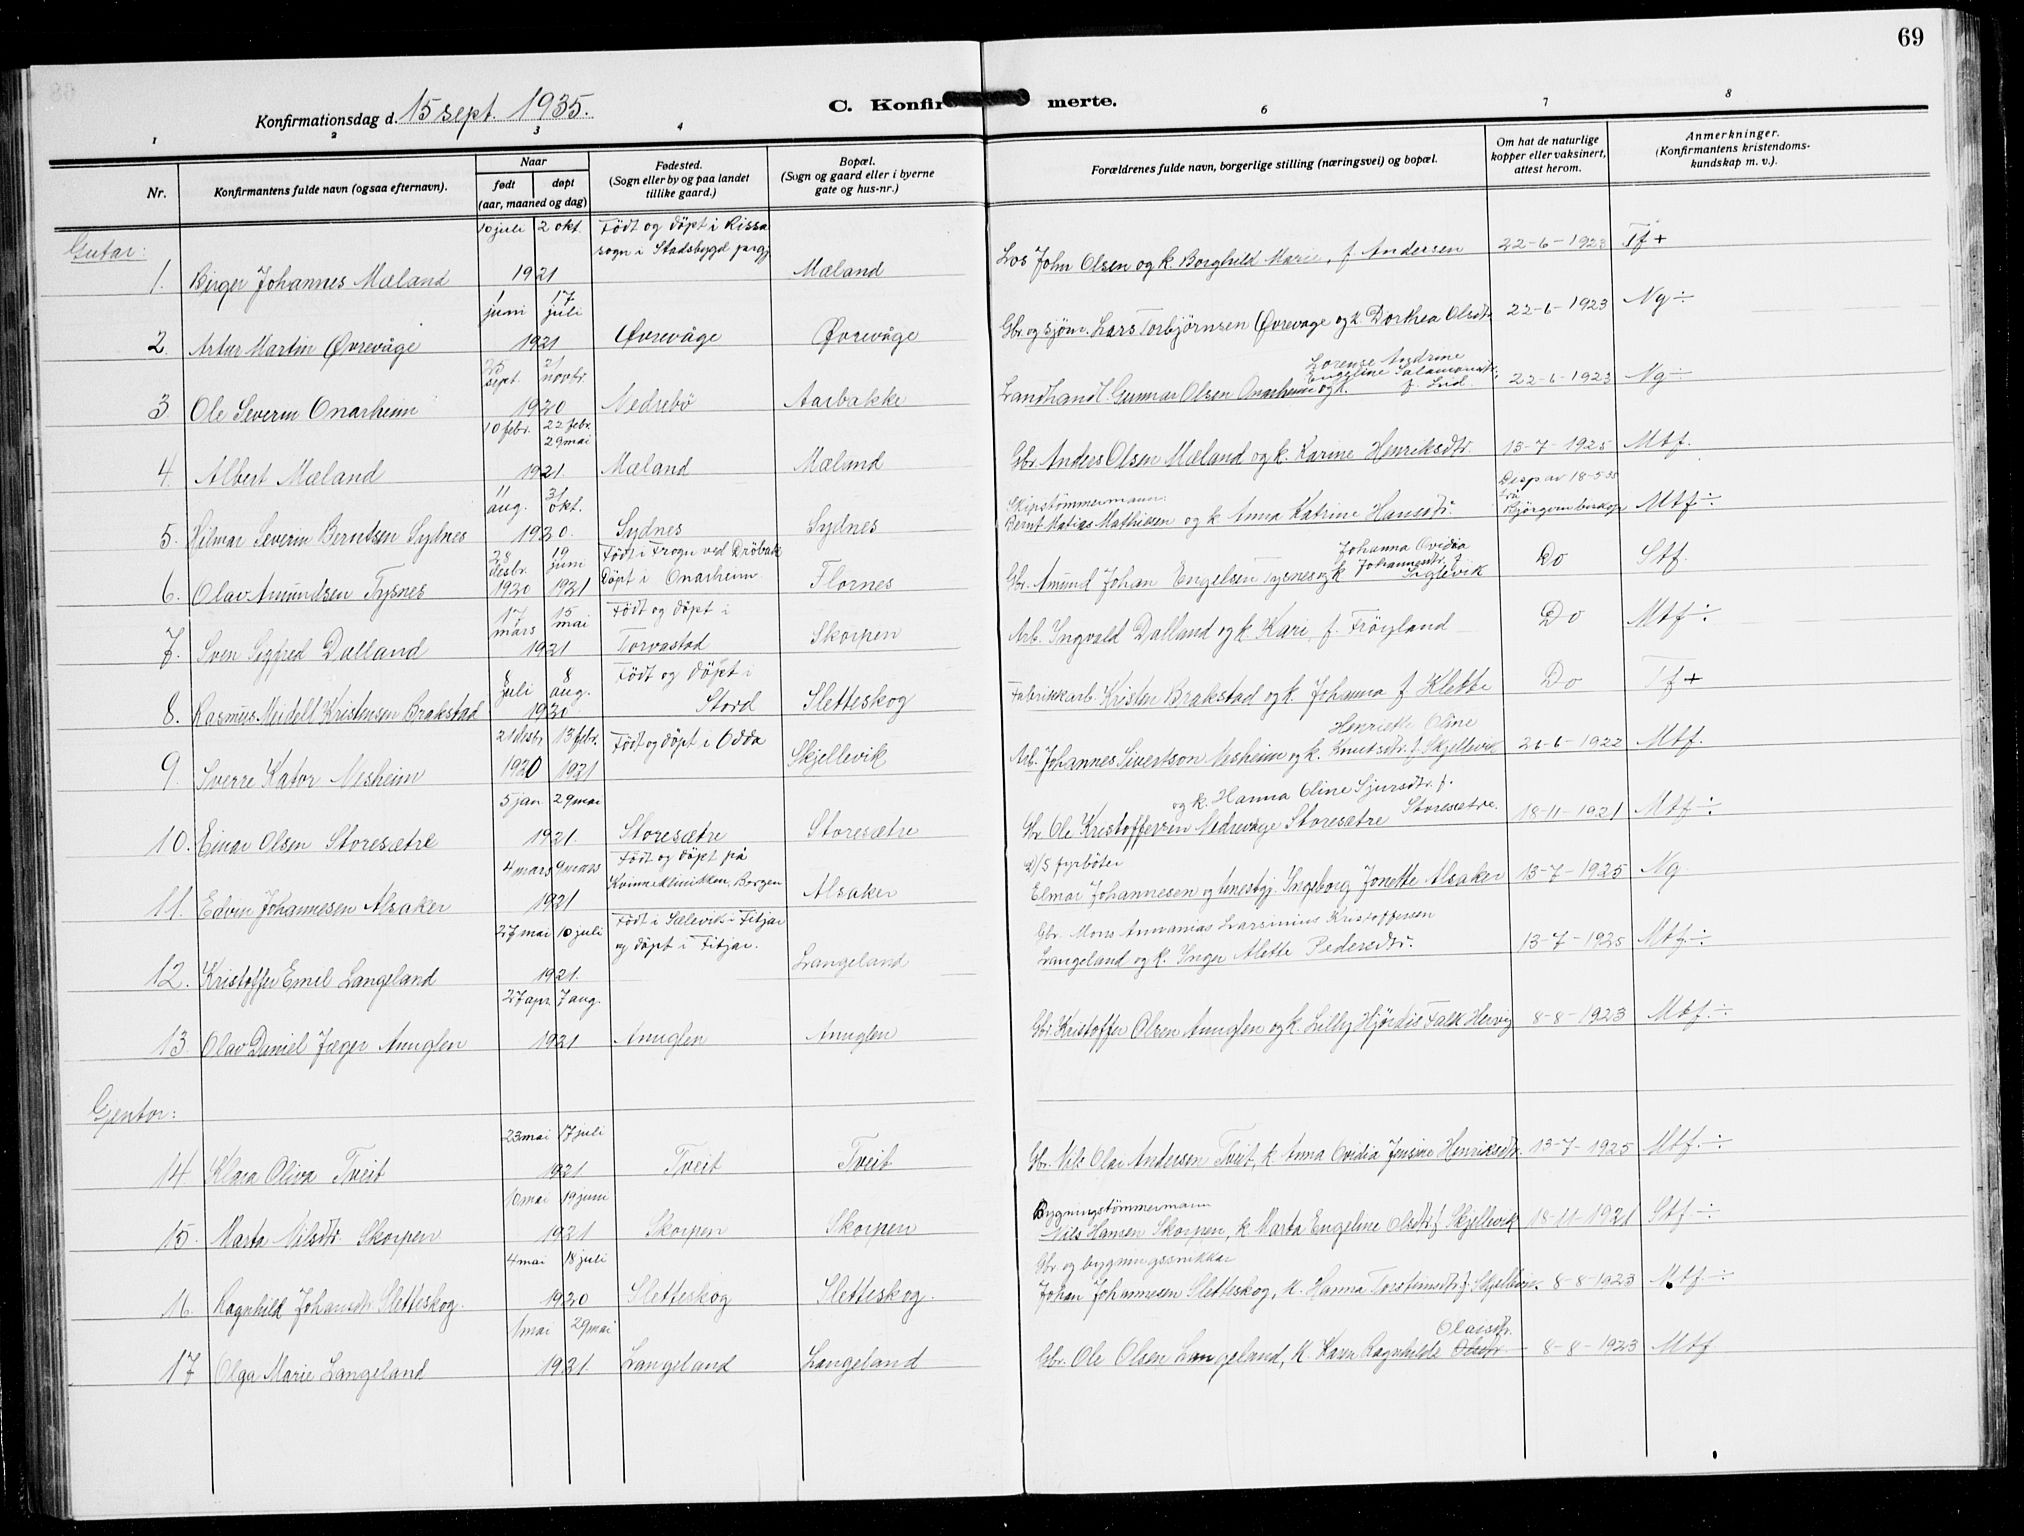 69
Konfirmationsdag d. 15 sept. 1935.
C. Konfirmerte.
1 2 3 4 6 7 8
Nr.
Konfirmantens fulde navn (ogsaa efternavn).
Naar
født døpt
(aar, maaned og dag)
Fødested.
(Sogn eller by og paa landet
tillike gaard.)
Bopæl.
(Sogn og gaard eller i byerne
gate og hus-nr.)
Forældrenes fulde navn, borgerlige stilling (næringsvei) og bopæl.
Om hat de naturlige
kopper eller vaksinert,
attest herom.
Anmerkninger.
(Konfirmantens kristendoms-
kundskap m. v.).
Gutar:
10 juli 2 okt. Født og døpt i Rissa
sogn i Stadsbygd prgj
1. Birger Johannes Mæland 1921 Mæland Los John Olsen og k. Borghild Marie, f. Andersen 22-6-1923 Tf +
1 juni 17 juli
2. Artur Martin Øvrevåge 1921 Øvrevåge Øvrevåge Gbr. og sjøm. Lars Torbjørnsen Øvrevåge og k. Dorthea Olsdtr 22-6-1923 Ng ÷
25 sept. 21 novbr.
Lorense Andrine
Engeline Salamonsdtr.
3 Ole Severin Onarheim 1920 Nedrebø Aarbakke Landhandl. Gunnar Olsen Onarheim og k. f. Lid. 22-6-1923 Ng ÷
10 febr. 22 febr.
29 mai
4. Albert Mæland 1921 Mæland Mæland Gbr. Anders Olsen Mæland og k. Karine Henriksdtr. 13-7-1925 Mtf.
11 aug. 31 okt.
Skipstømmermann
Disp av 18-5-35
frå
Bjørgvin biskop
5. Hilmar Severin Berntsen Sydnes 1920. Sydnes Sydnes Bernt Matias Mathiesen og k. Anna Katrine Hansdtr. Mtf ÷
28 desbr. 19 juni Født i Frogn ved Drøbak
Johanna Ovidia
Johannesdtr. f.
6. Olav Amundsen Tysnes 1920 1921 Døpt i Onarheim Flornes Gbr. Amund Johan Engelsen Tysnes og k Inglevik Do Stf.
17 mars 15 mai Født og døpt i
7. Sven Sigfred Dalland 1921 Torvastad Skorpen Arb. Ingvald Dalland og k. Kari, f. Frøyland Do Mtf ÷
8 juli 8 aug. Født og døpt i
8. Rasmus Meidell Kristensen Brakstad 1920 Stord Sletteskog Fabrikkarb. Kristen Brakstad og k. Johanna f Klette Do Tf +
21 desbr 13 febr. Født og døpt i Odda
Henriette Oline
9. Sverre Kator Nesheim 1920 1921 Skjellevik Arb. Johannes Sivertson Nesheim og k. Knutsdtr. f. Skjellevik 26-6-1922 Mtf.
5 jan. 29 mai
og k. Hanna Oline Sjursdtr. f.
Storesætre.
10. Einar Olsen Storesætre 1921. Storesætre Storesætre Gbr. Ole Kristoffersen Nedrevåge Storesætre 18-11-1921 Mtf ÷
4 mars 9 mars Født og døpt på
Kvinneklinikken, Bergen
D/S fyrbøter
11. Edvin Johannesen Alsaker 1921 Alsaker Elmar Johannesen og tenestgj. Ingeborg Jonette Alsaker 13-7-1925 Ng
27 mai 10 juli Født i Sælevik i Fitjar
og døpt i Fitjar.
Gbr. Mons Annanias Larsinius Kristoffersen
12. Kristoffer Emil Langeland 1921. Langeland Langeland og k. Inger Alette Pedersdtr. 13-7-1925 Mtf ÷
27 apr. 7 aug.
13 Olav Daniel Jæger Anuglen 1921 Anuglen Anuglen Gbr. Kristoffer Olsen Anuglen og k. Lilly Hjørdis Falk Hervig 8-8-1923 Mtf. ÷
Gjentor:
23 mai 17 juli
14 Klara Oliva Tveit 1921 Tveit Tveit Gbr. Nils Olai Andersen Tveit, k Anna Ovidia Jensine Henriksdtr. 13-7-1925 Mtf. ÷
10 mai 19 juni
Bygningstømmermann
15. Marta Nilsdtr. Skorpen 1921 Skorpen Skorpen Nils Hansen Skorpen, k. Marta Engeline Olsdtr f Skjellevik 18-11-1921 Stf. ÷
4 mai 18 juli
Gbr og bygningssnikkar
16. Ragnhild Johansdtr. Sletteskog. 1920 Sletteskog Sletteskog. Johan Johannesen Sletteskog, k. Hanna Torsteinsdtr. f. Skjellevik 8-8-1923 Mtf ÷
1 mai 29 mai
Olaisdtr.
17 Olga Marie Langeland 1921. Langeland Langeland Gbr. Ole Olsen Langeland, k. Karen Ragnhilde Olsdtr 8-8-1923 Mtf